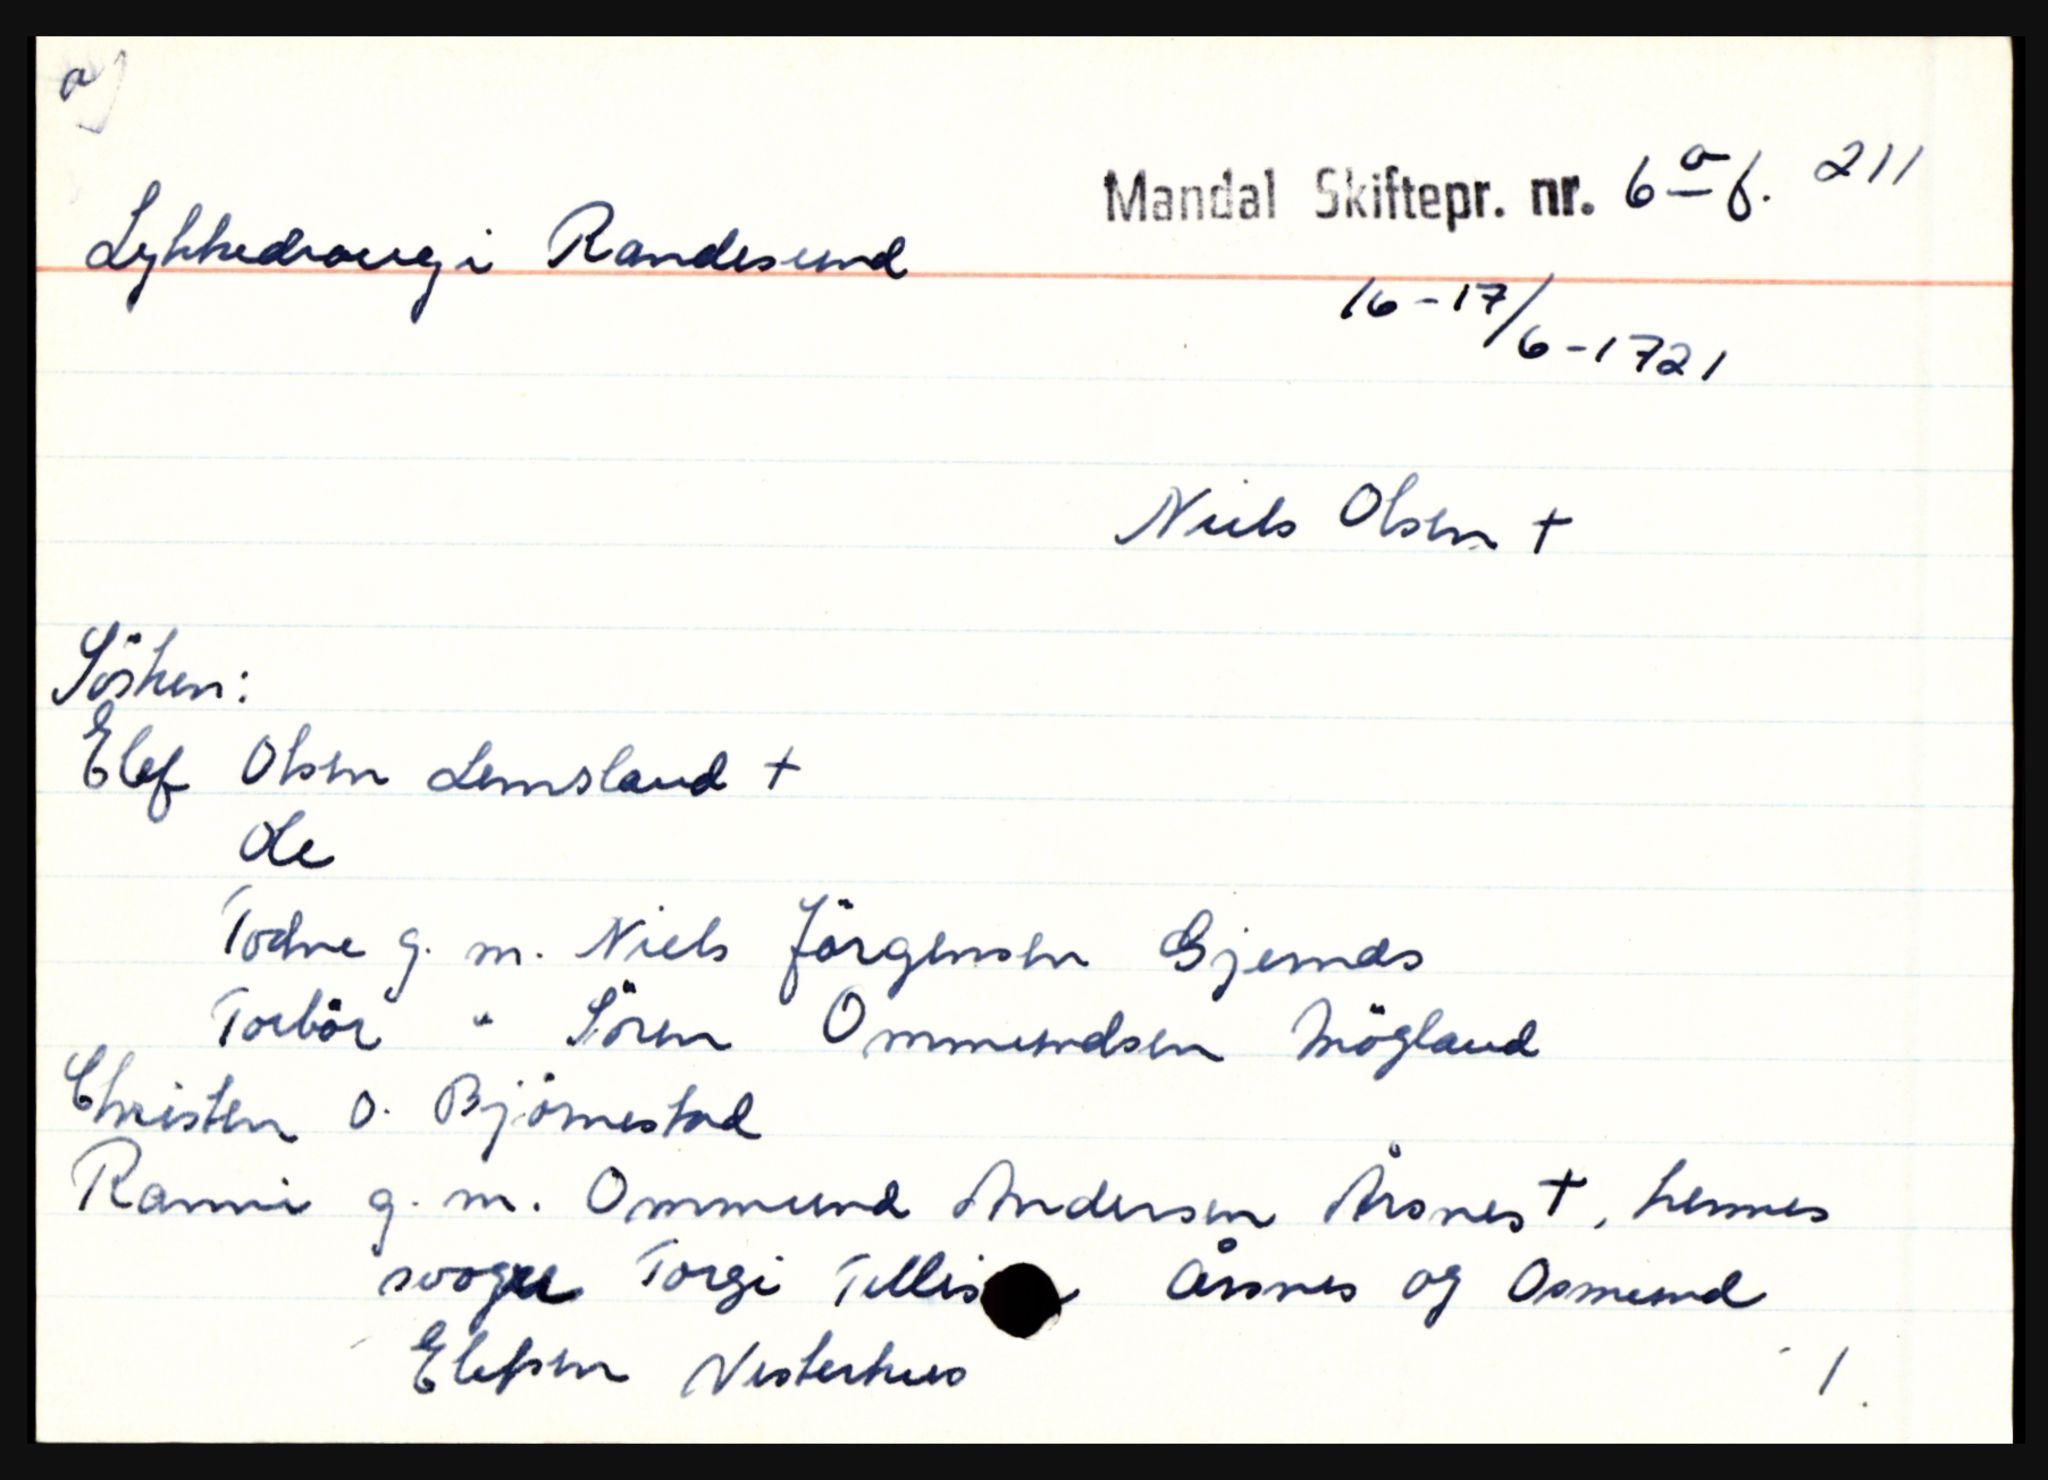 a)
Mandal Skiftepr. nr. 6a f. 211
Lykkedraug i Randesund
16-17/6-1721
Niels Olsen +
Sösken:
Elef Olsen Lemsland +
Ole
Todne g. m. Niels Jörgensen Gjernæs
Torbör " Sören Ommundsen Mögland
Christen O. Bjömestad
Ranni g. m. Ommund Andersen Årsnes +, hennes
svoger Torgi Tellis Årsnes og Osmund
Elefsen Vesterhus
1.